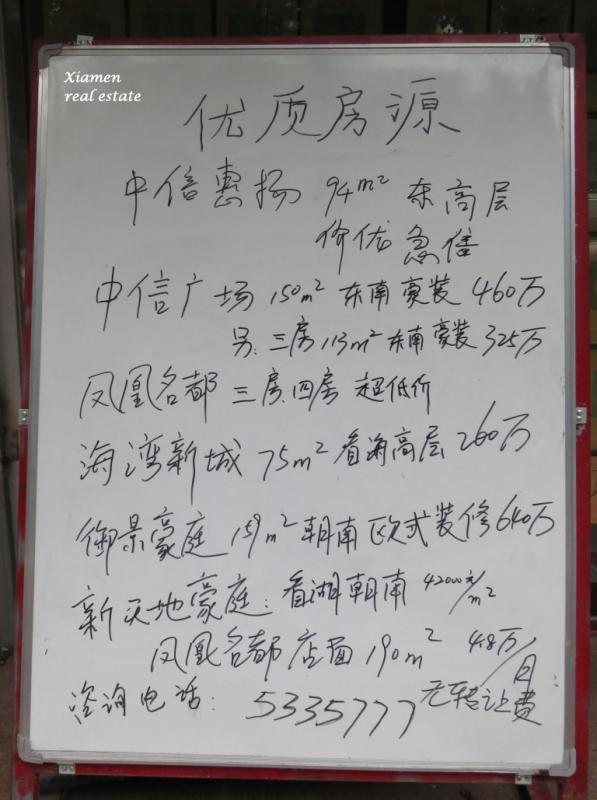 Xiamen
real estate
优质房源
中信惠扬 94m² 东高层
价优急售
中信广场 150m² 东南豪装 460万
另:三房113m² 东南豪装 325万
凤凰名都 三房、四房 超低价
海湾新城 75m² 看海高层 260万
御景豪庭 159m² 朝南 欧式装修 640万
新天地豪庭:看湖朝南 42000元/m²
凤凰名都店面 190m² 4.8万/月
无转让费
咨询电话: 5335777